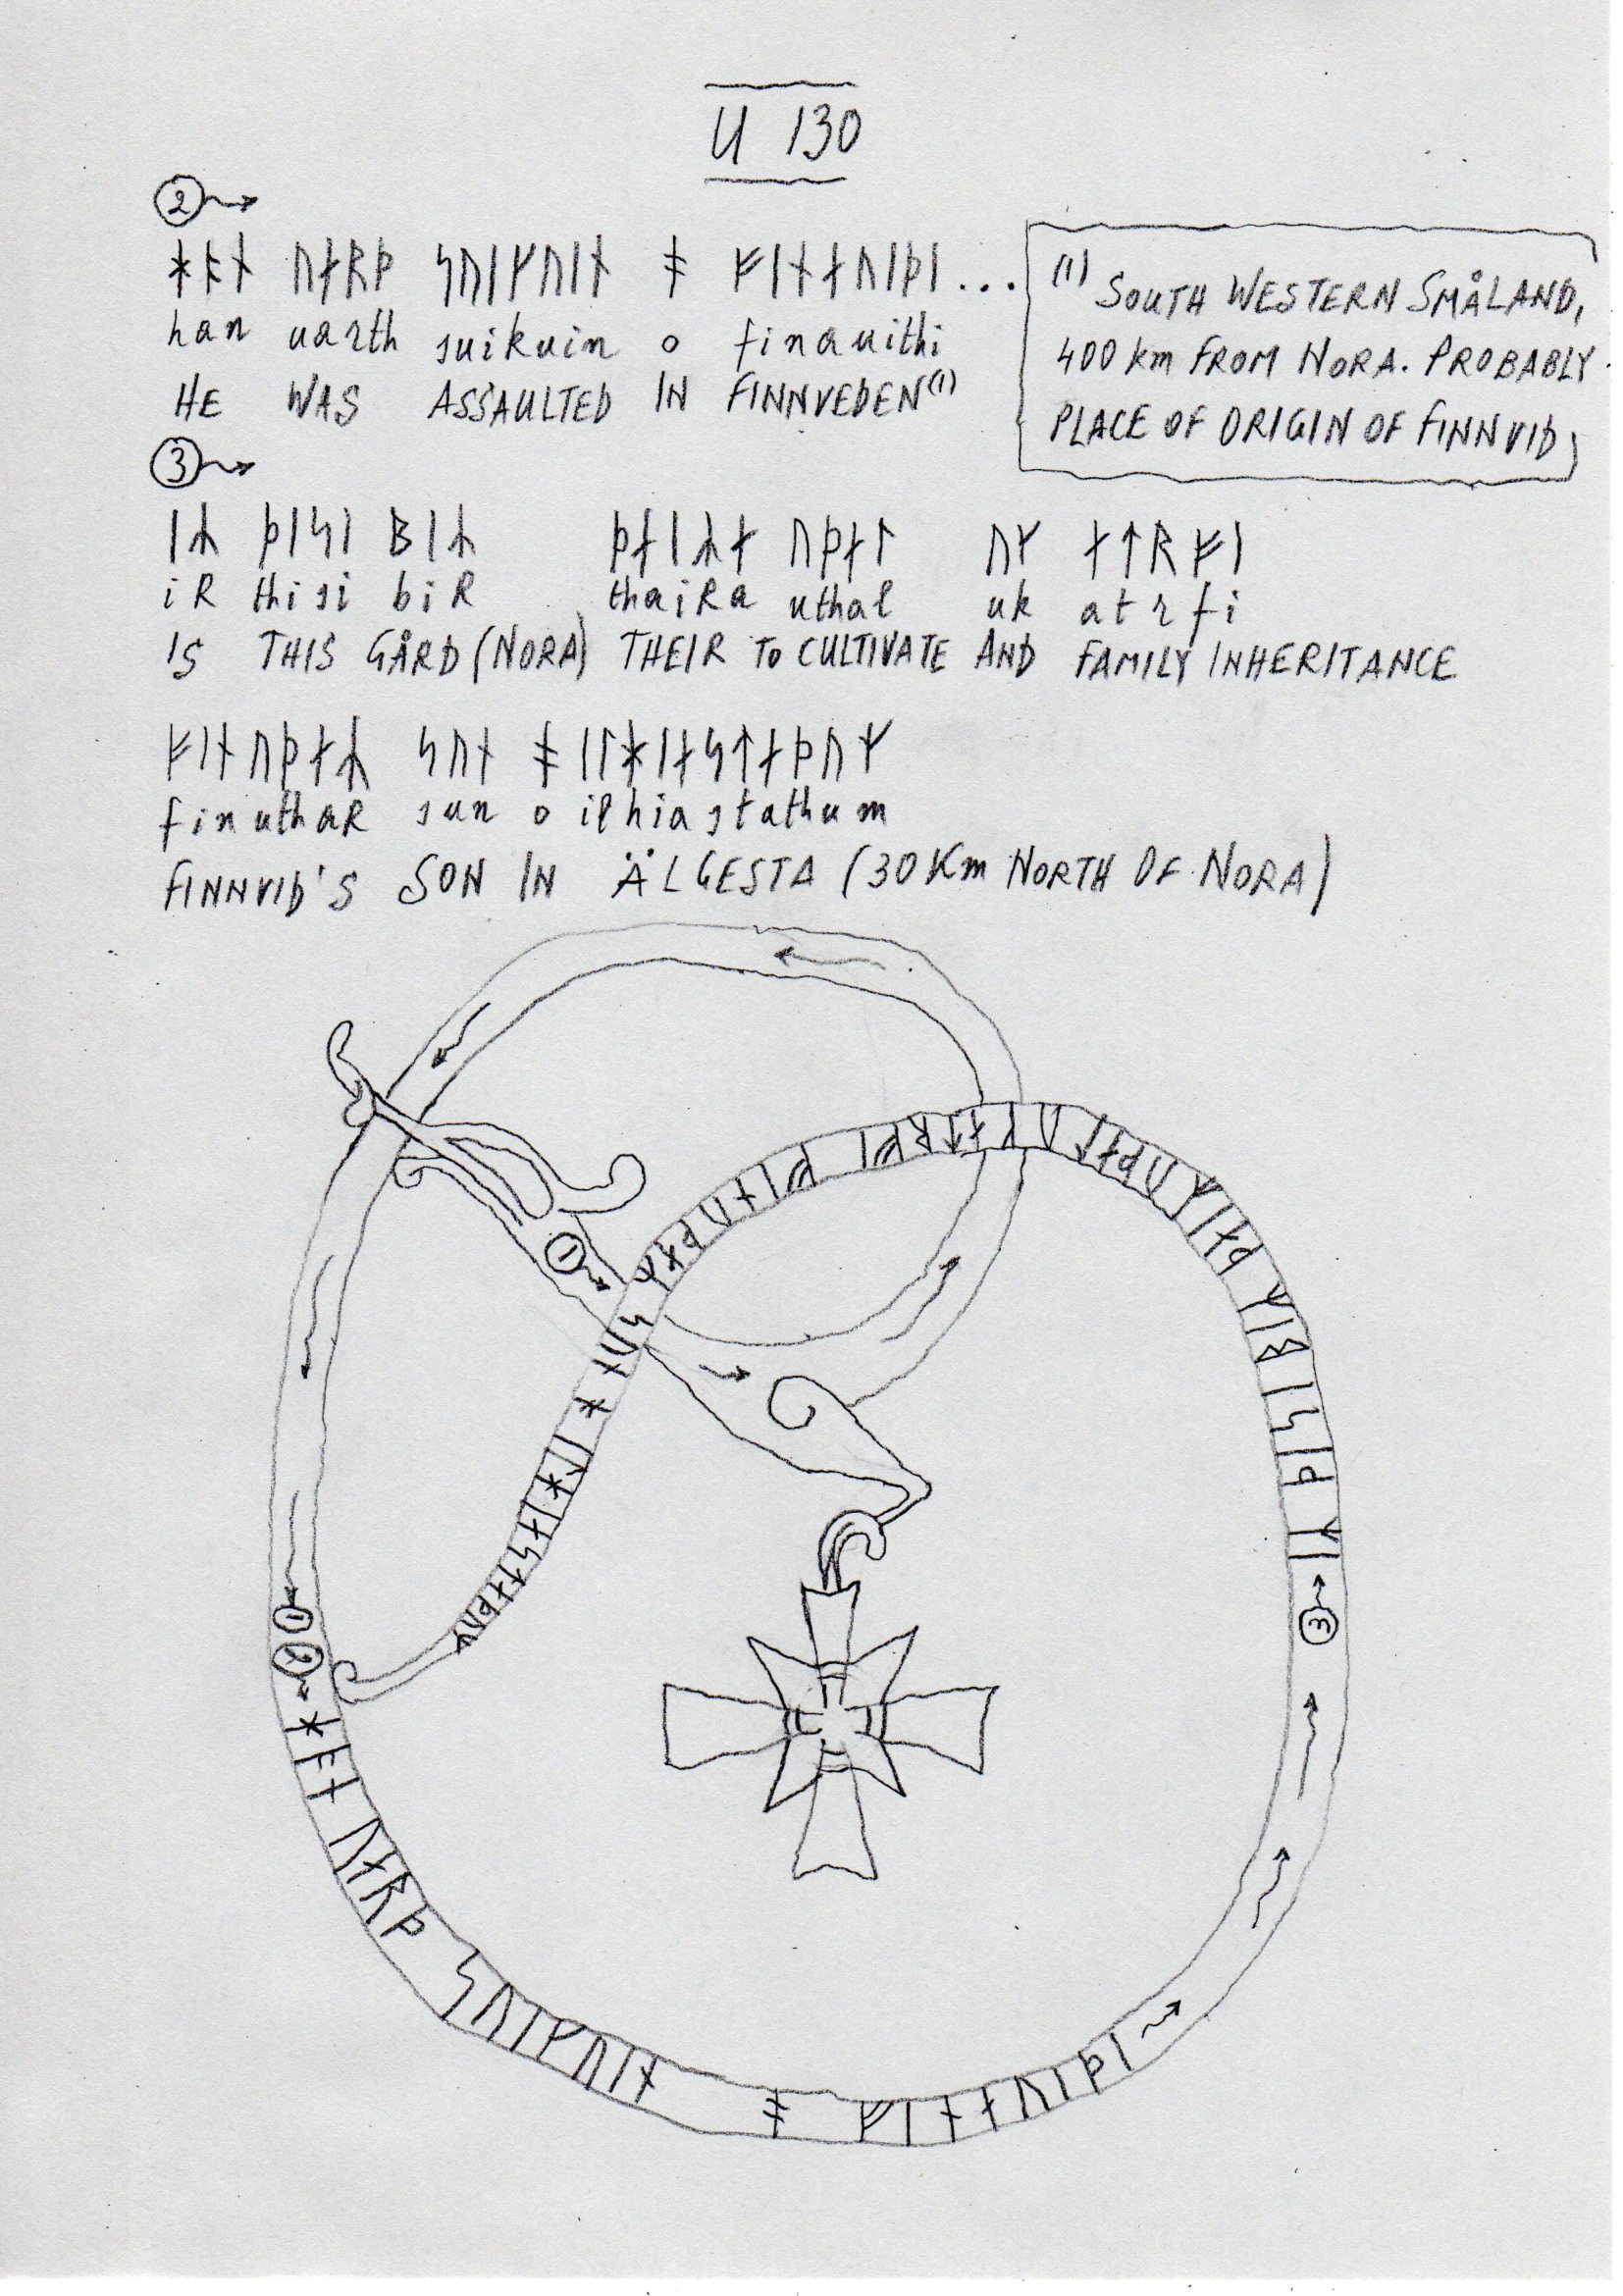 U 130
②
ᚼᚨᚾ ᚢᛅᚱᚦ ᛋᚢᛁᚴᚢᛁᚾ ᚬ ᚠᛁᚾᛅᚢᛁᚦᛁ...
han uarth suikuin o finauithi
HE WAS ASSAULTED IN FINNVEDEN(1)
(1) SOUTH WESTERN SMÅLAND,
400 km FROM NORA. PROBABLY
PLACE OF ORIGIN OF FINNVID
③
ᛁᛦ ᚦᛁᛋᛁ ᛒᛁᛦ ᚦᛅᛁᛦᛅ ᚢᚦᛅᛚ ᚢᚴ ᛅᛏᚱᚠᛁ
iR thisi biR thaiRa uthal uk atrfi
IS THIS GÅRD (NORA) THEIR TO CULTIVATE AND FAMILY INHERITANCE
ᚠᛁᚾᚢᚦᛅᛦ ᛋᚢᚾ ᚬ ᛁᛚᚼᛁᛅᛋᛏᛅᚦᚢᛘ
finuthaR sun o ilhiastathum
FINNVID'S SON IN ÄLGESTA (30 Km NORTH OF NORA)
①
①
②
ᚼᚨᚾ ᚢᛅᚱᚦ ᛋᚢᛁᚴᚢᛁᚾ ᚬ ᚠᛁᚾᛅᚢᛁᚦᛁ
③
ᛁᛦ ᚦᛁᛋᛁ ᛒᛁᛦ ᚦᛅᛁᛦ ᚢᚦᛅᛚ ᚢᚴ ᛅᛏᚱᚠᛁ ᚠᛁᚾᚢᚦᛅᛦ ᛋᚢᚾ ᚬ ᛁᛚᚼᛁᛅᛋᛏᛅᚦᚢᛘ